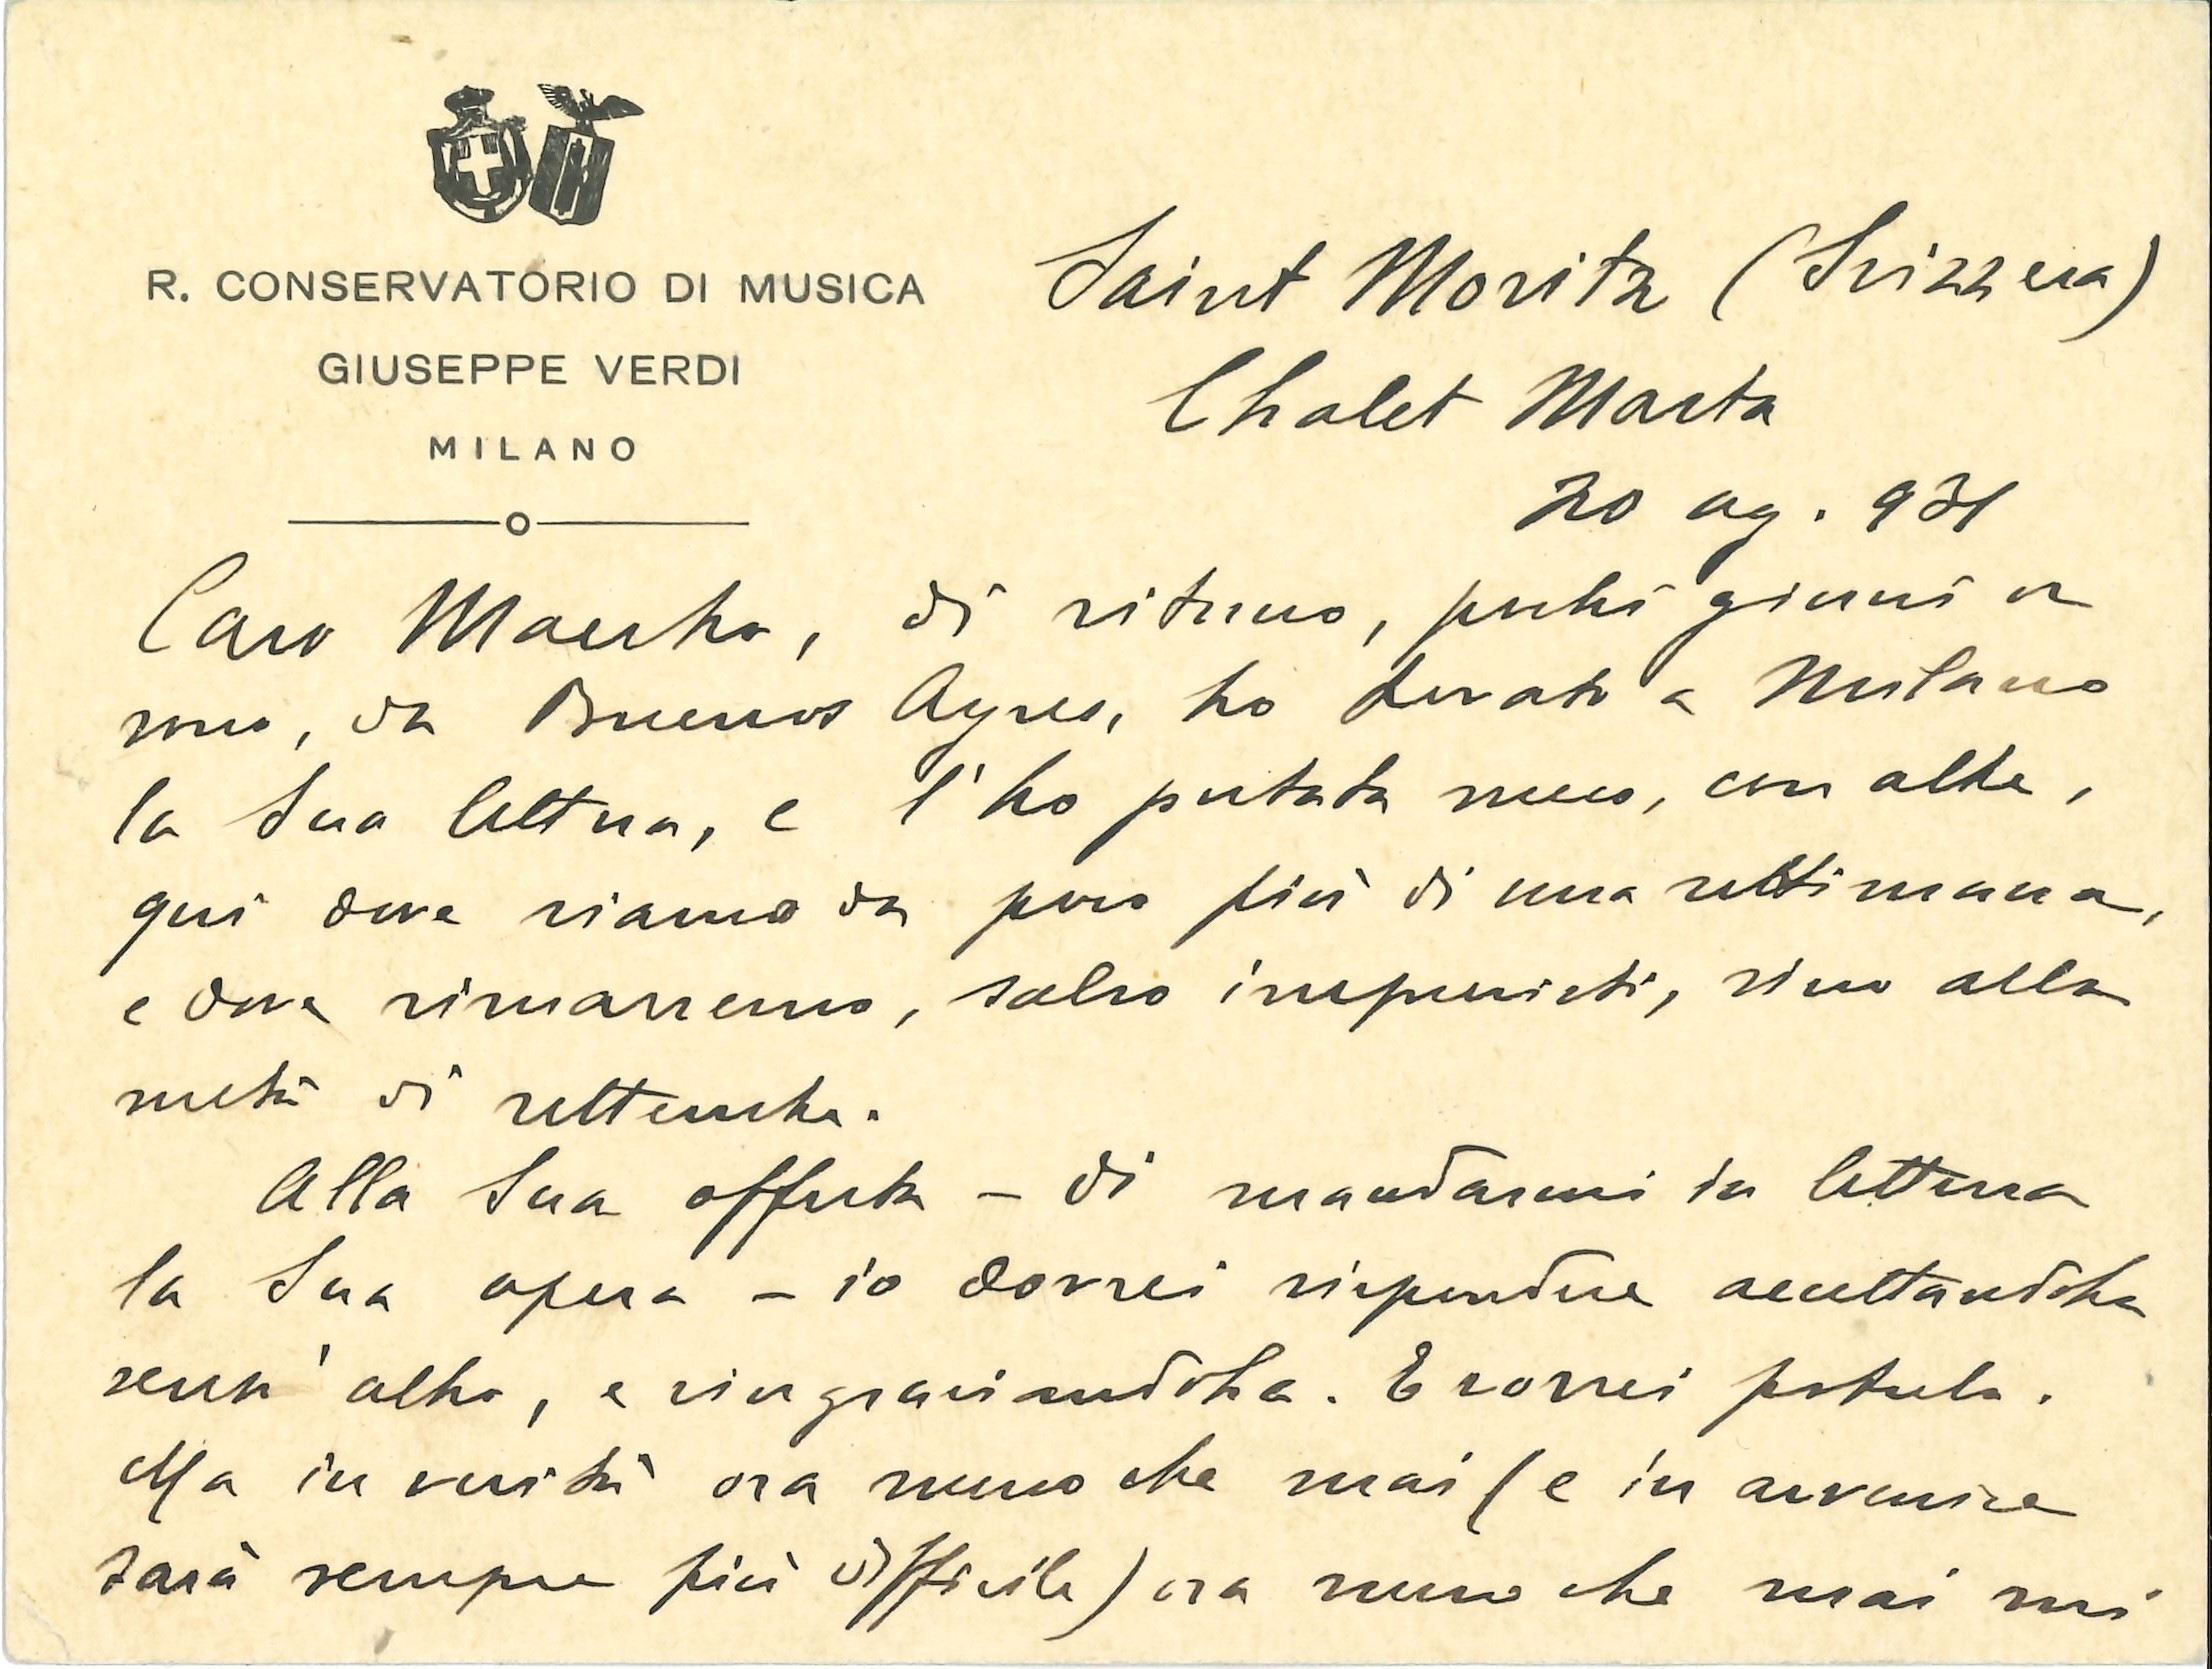 R. CONSERVATORIO DI MUSICA
GIUSEPPE VERDI
MILANO
Saint Moritz (Svizzera)
Chalet Marta
20 ag. 931
Caro Maestro, di ritorno, pochi giorni or
sono, da Buenos Ayres, ho trovato a Milano
la Sua lettera, e l'ho portata meco, con altre,
qui dove siamo da poco più di una settimana,
e dove rimarremo, salvo imprevisti, sino alla
metà di settembre.
Alla Sua offerta – di mandarmi in lettura
la Sua opera – io dovrei rispondere accettandola
senz'altro, e ringraziandola. E vorrei poterlo.
Ma in verità ora meno che mai (e in avvenire
sarà sempre più difficile) ora meno che mai mi